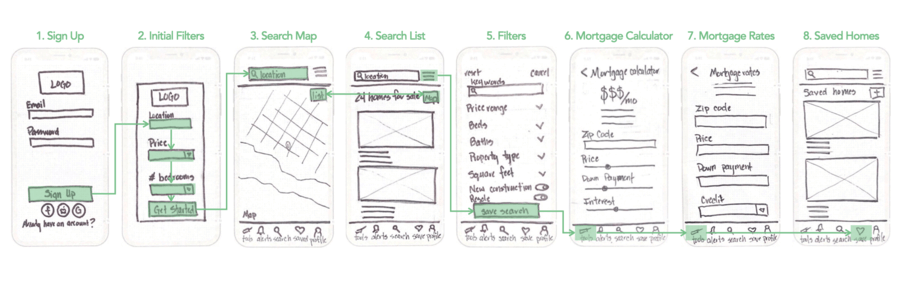 1. Sign Up
LOGO
Email
Password
Sign Up
Already have an account?
2. Initial Filters
LOGO
Location
Price
# bedrooms
Get Started
3. Search Map
location
List
Map
tools alerts search saved profile
4. Search List
location
24 Homes for sale
Map
tools alerts search save profile
5. Filters
Cancel
Keywords
Price range
Beds
Baths
Property type
Square feet
New construction
Resale
save search
tools alerts search save profile
6. Mortgage Calculator
< Mortgage calculator
$$$/mo
Zip Code
Price
Down Payment
Interest
tools alerts search save profile
7. Mortgage Rates
< Mortgage rates
Zip code
Price
Down payment
Credit
tools alerts search save profile
8. Saved Homes
Saved homes
+
tools alerts search save profile